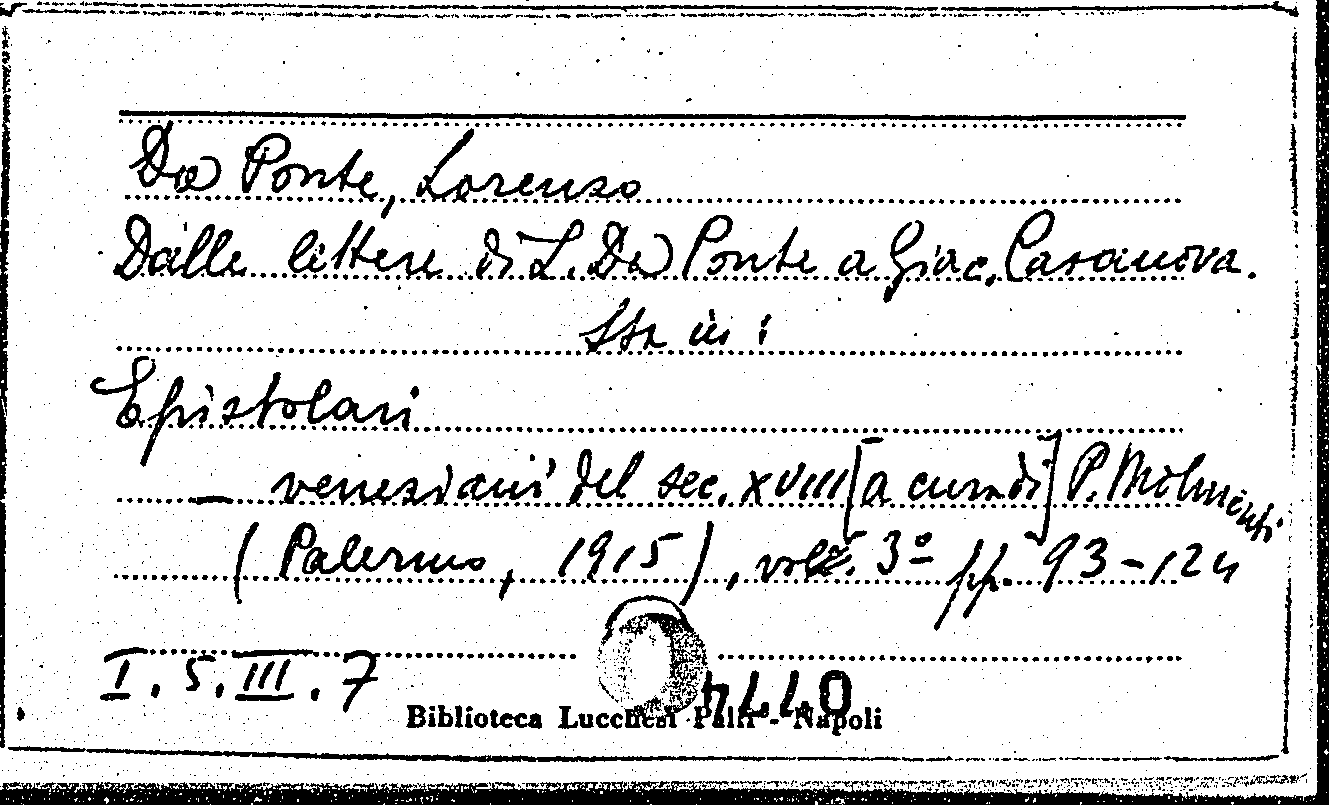 Da Ponte, Lorenzo
Dalle lettere di L. Da Ponte a Giac. Casanova.
Sta in:
Epistolari
— veneziani del sec. XVIII [a cura di] P. Molmenti
(Palermo, 1915), vol. 3º pp. 93-124
I. 5. III. 7
Biblioteca Lucchesi Palli - Napoli